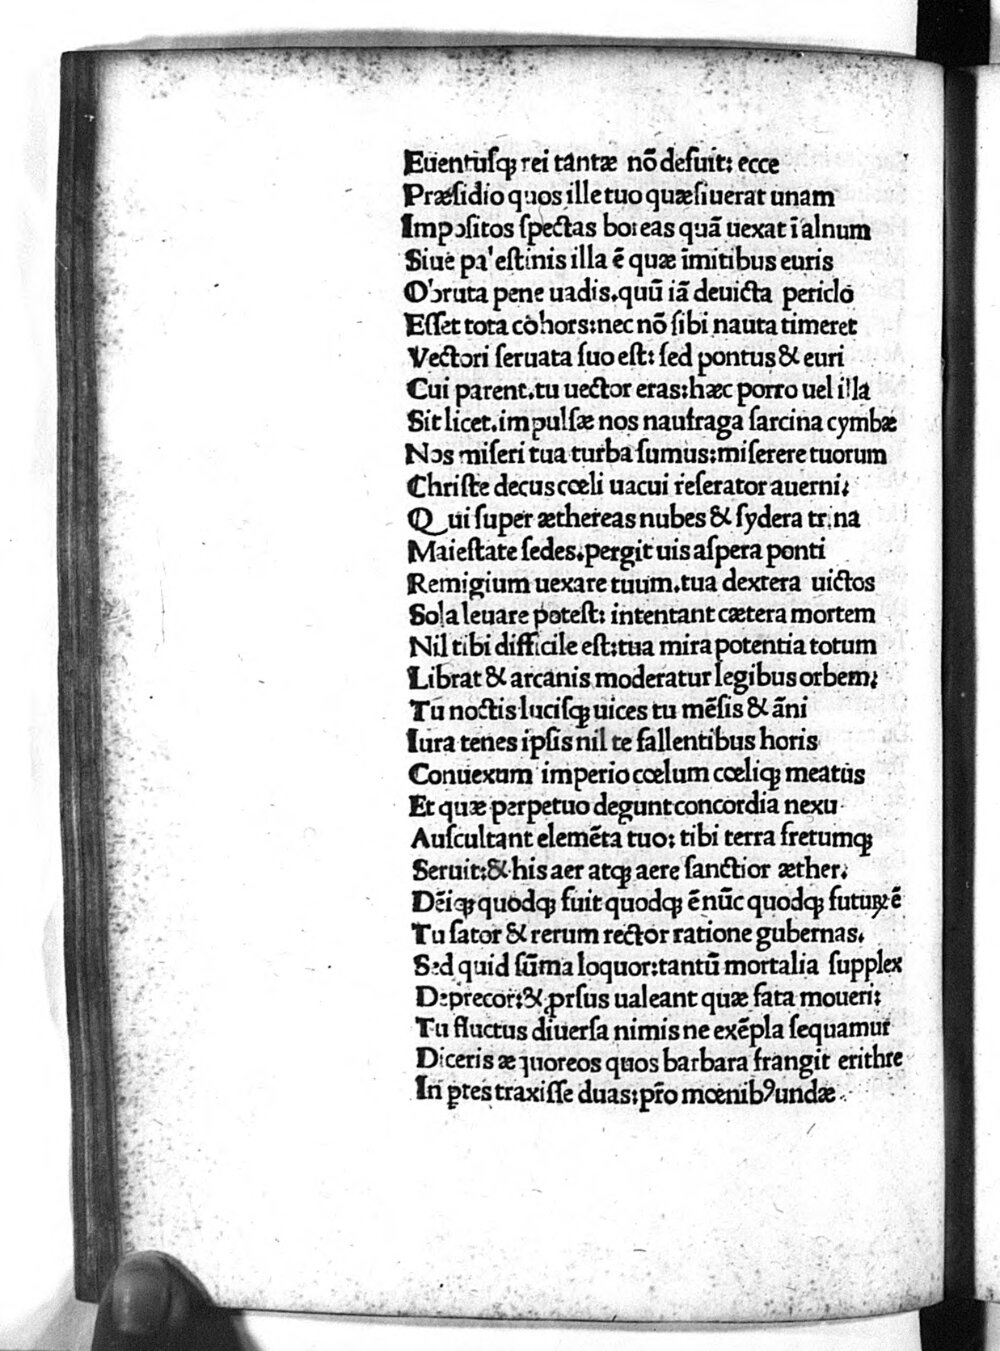 Euentuſqꝫ rei tantæ nõ defuit: ecce
Præſidio quos ille tuo quæſiuerat unam
Impoſitos ſpectas boreas quã uexat ĩ alnum
Siue paleſtinis illa ẽ quæ ĩmitibus euris
Obruta pene uadis. quũ iã deuicta periclo
Eſſet tota cohors: nec nõ ſibi nauta timeret
Vectori ſeruata ſuo eſt: ſed pontus & euri
Cui parent. tu uector eras: hæc porro uel illa
Sit licet. impulſæ nos naufraga ſarcina cymbæ
Nos miſeri tua turba ſumus: miſerere tuorum
Chriſte decus cœli uacui reſerator auerni:
Qui ſuper æthereas nubes & ſydera trina
Maieſtate ſedes. pergit uis aſpera ponti
Remigium uexare tuum. tua dextera uictos
Sola leuare poteſt: intentant cætera mortem
Nil tibi difficile eſt: tua mira potentia totum
Librat & arcanis moderatur legibus orbem:
Tu noctis luciſqꝫ uices tu mẽſis & ãni
Iura tenes ipſis nil te fallentibus horis
Conuexum imperio cœlum cœliqꝫ meatus
Et quæ perpetuo degunt concordia nexu
Auſcultant elemẽta tuo: tibi terra fretumqꝫ
Seruit: & his aer atqꝫ aere ſanctior æther.
Dẽiqꝫ quodqꝫ fuit quodqꝫ ẽ nũc quodqꝫ futuꝝ ẽ
Tu ſator & rerum rector ratione gubernas.
Sed quid ſũma loquor: tantũ mortalia ſupplex
Deprecor: & ꝓrſus ualeant quæ fata moueri:
Tu fluctus diuerſa nimis ne exẽpla ſequamur
Diceris æquoreos quos barbara frangit erithre
In ꝑtes traxiſſe duas: pr̃o mœnibꝰ undæ